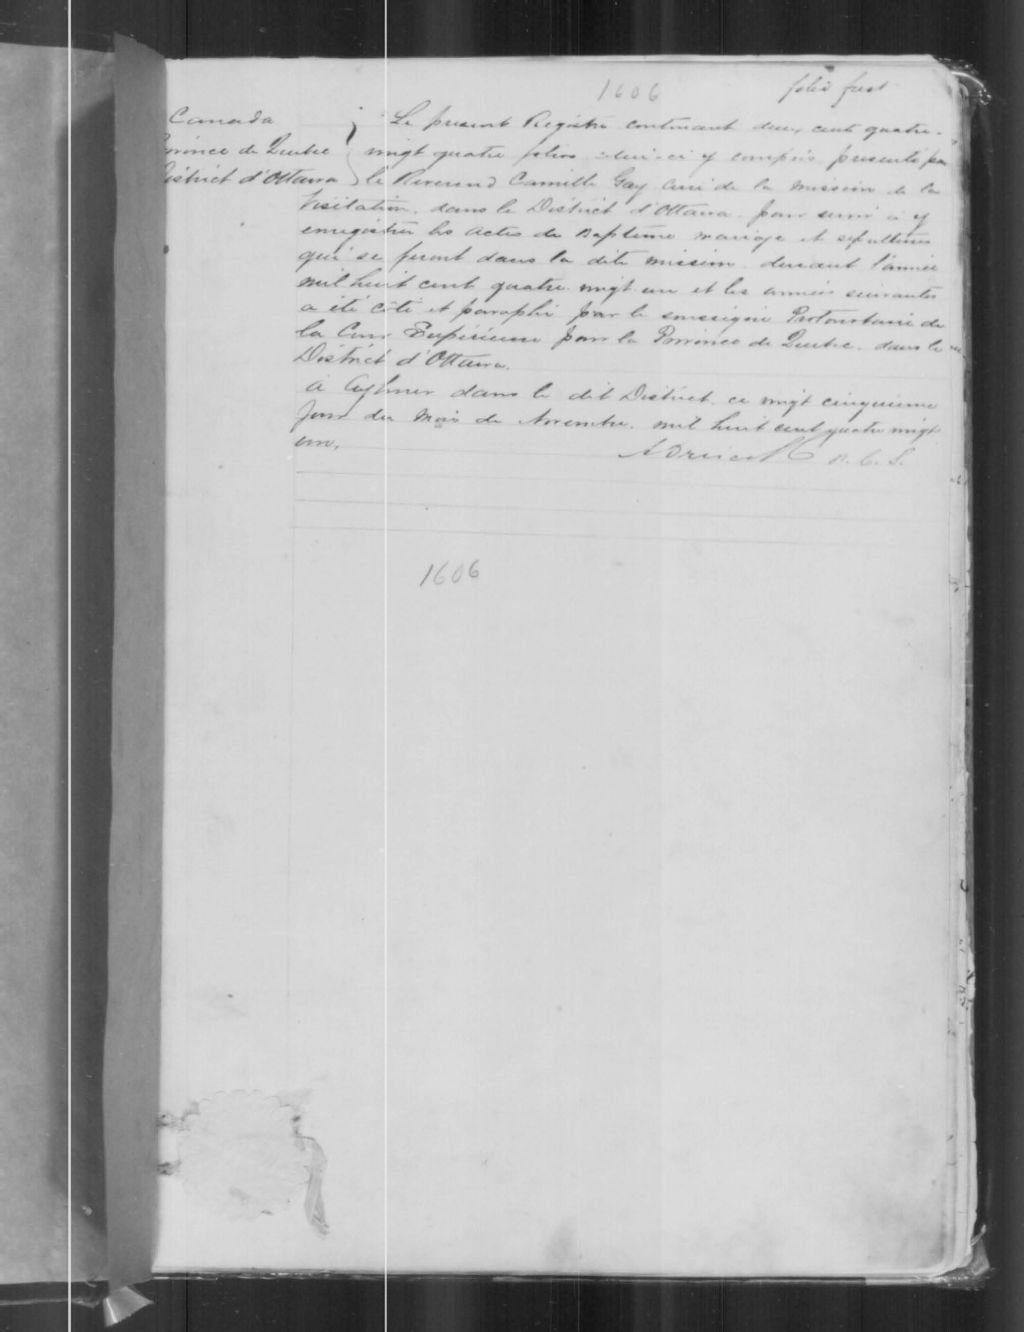 1606
folio first
Canada
Province de Quebec
District d'Ottawa
Le present Registre contenant deux cent quatre-
vingt quatre folios celui-ci y compris presenté par
le Reverend Camille Gay curé de la mission de la
Visitation, dans le District d'Ottawa pour servir a y
enregistrer les actes de Baptême mariage et sepultures
qui se feront dans la dite mission durant l'année
mil huit cent quatre vingt un et les années suivantes
a été côté et paraphé par le soussigné Protonotaire de
la Cour Supérieure pour la Province de Quebec, dans le
District d'Ottawa.
à Aylmer dans le dit District, ce vingt cinquieme
jour du mois de Novembre, mil huit cent quatre vingt
un,
Driscoll P. C. S.
1606